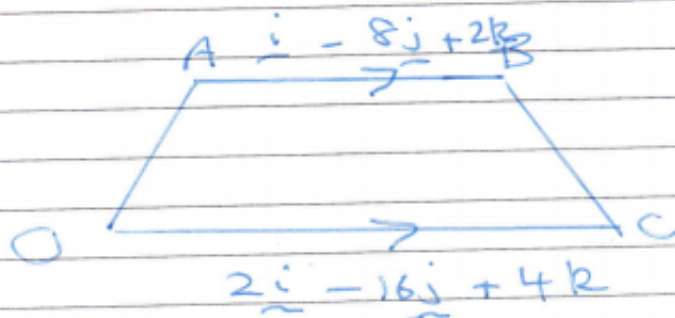 A i - 8j + 2k B
O C
2i - 16j + 4k